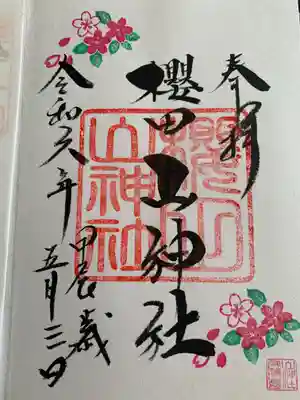 奉拝
櫻田山神社
令和六年
甲辰歳
五月三日
櫻田山神社